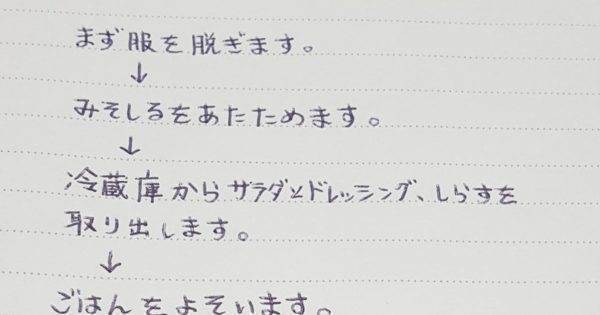 まず服を脱ぎます。
↓
みそしるをあたためます。
↓
冷蔵庫からサラダとドレッシング、しらすを
取り出します。
↓
ごはんをよそいます。